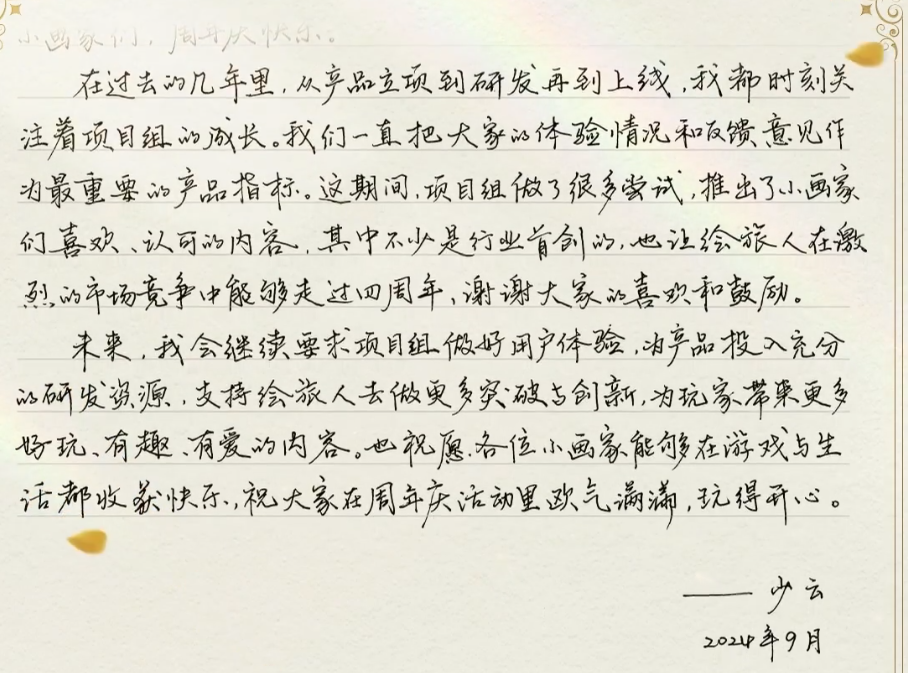 小画家们，周年庆快乐。
在过去的几年里，从产品立项到研发再到上线，我都时刻关
注着项目组的成长。我们一直把大家的体验情况和反馈意见作
为最重要的产品指标。这期间，项目组做了很多尝试，推出了小画家
们喜欢、认可的内容，其中不少是行业首创的，也让绘旅人在激
烈的市场竞争中能够走过四周年，谢谢大家的喜欢和鼓励。
未来，我会继续要求项目组做好用户体验，为产品投入充分
的研发资源，支持绘旅人去做更多突破与创新，为玩家带来更多
好玩、有趣、有爱的内容。也祝愿各位小画家能够在游戏与生
活都收获快乐，祝大家在周年庆活动里欧气满满，玩得开心。
—— 少云
2024年9月